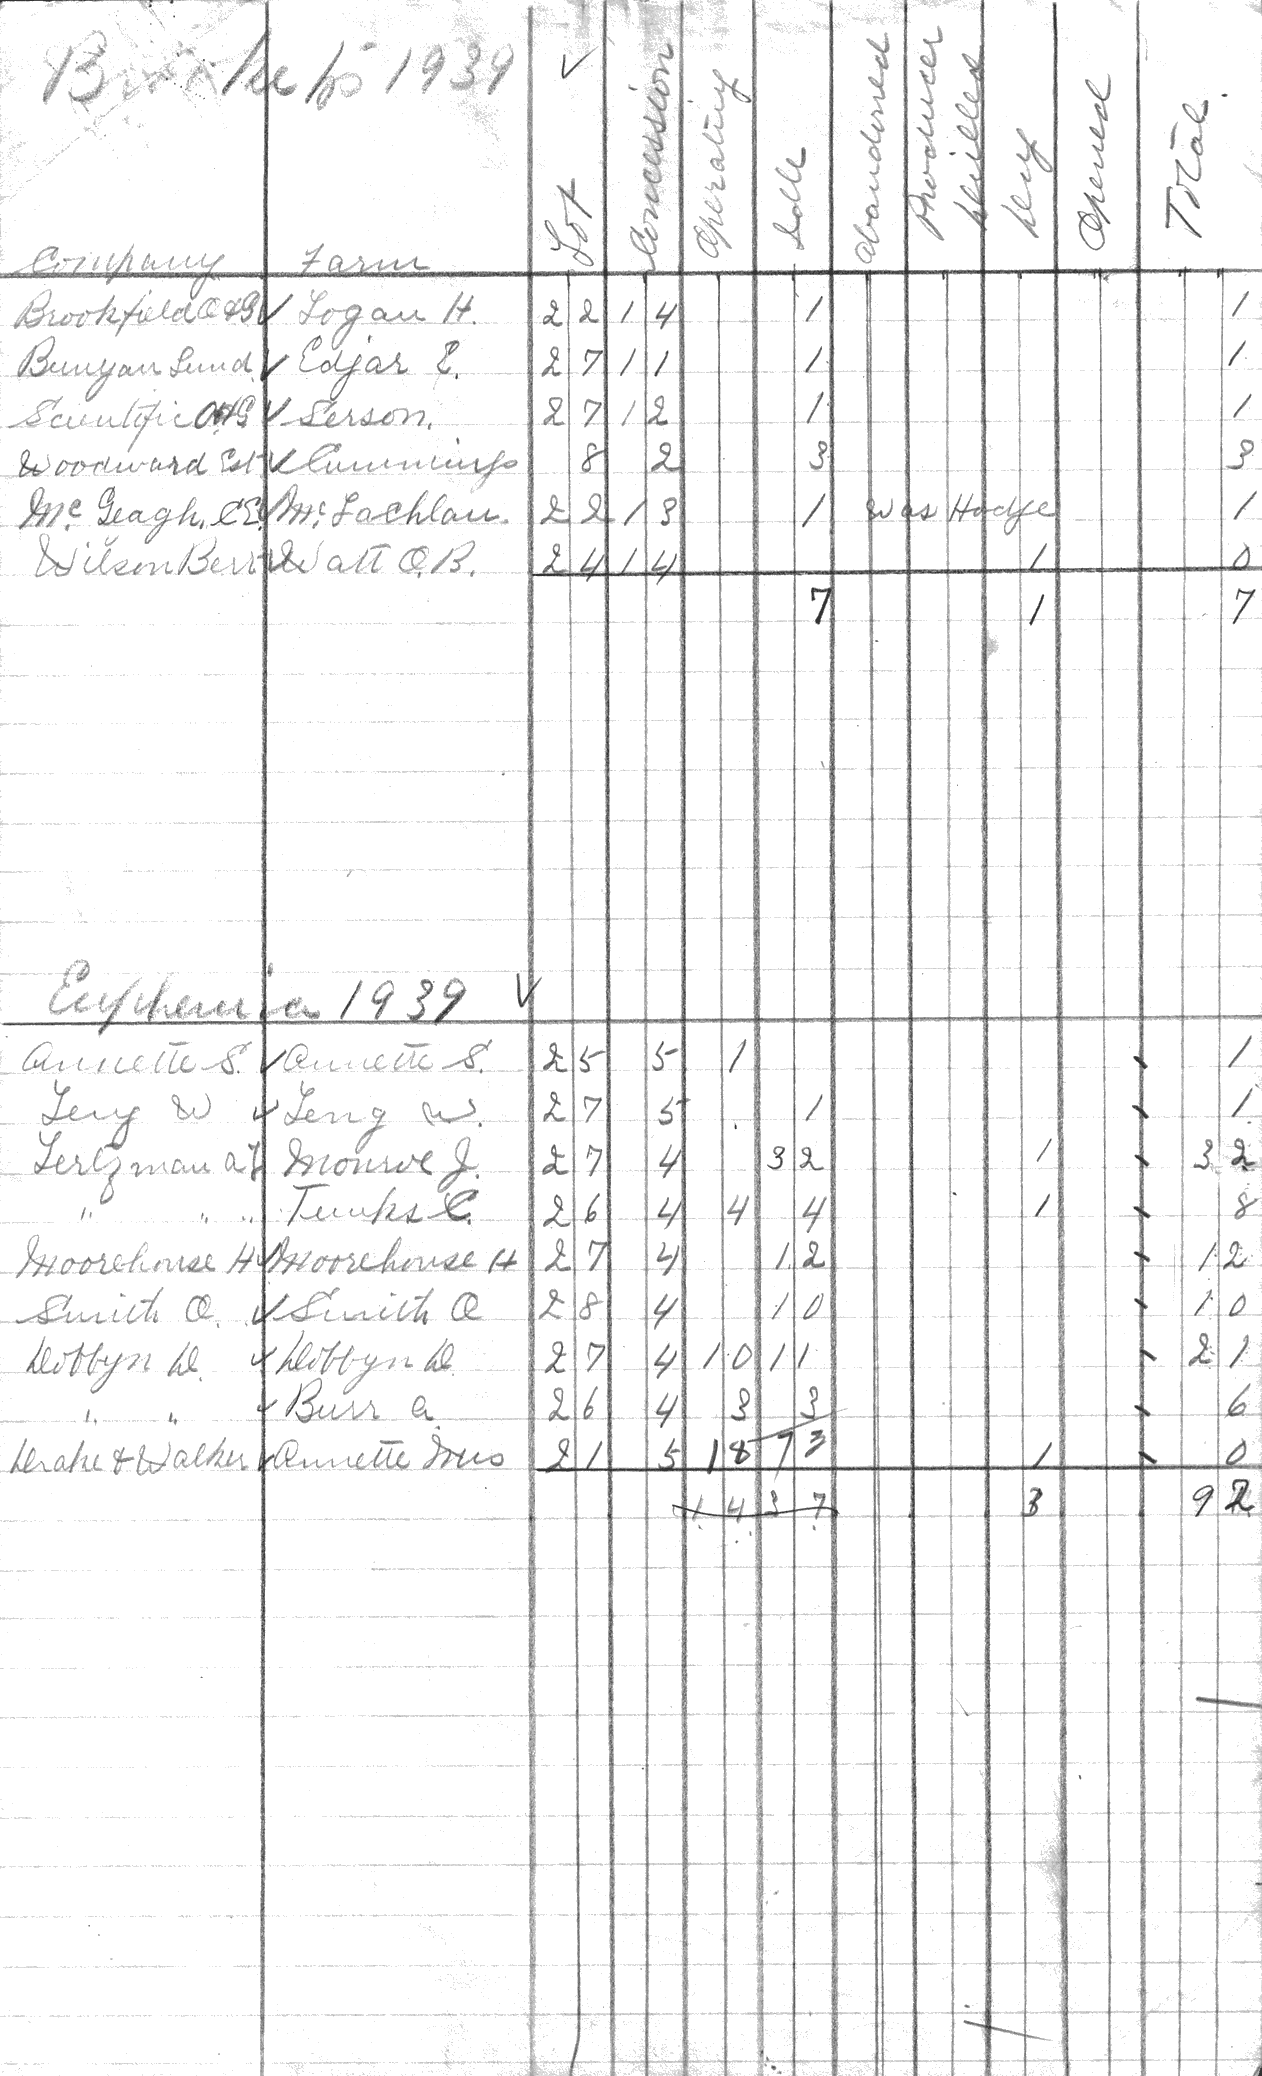 Brooke tp 1939 ✓
Company Farm Lot Concession Operating Idle Abandoned Producer Drilled Dry Opened Total
Brookfield O&G ✓ Logan H. 22 14 1 1
Bunyan Lund. ✓ Edjar E. 27 11 1 1
Scientific O&G ✓ Serson. 27 12 1 1
Woodward Est ✓ Cummings 8 2 3 3
Mc Geagh. C E. Mc Lachlan. 22 13 1 Was Hodge 1
Wilson Bert Watt O.B. 24 14 1 0
7 1 7
Euphemia 1939 ✓
Annette S. ✓ Annette S. 25 5 1 1
Leng W ✓ Leng W. 27 5 1 1
Monroe J. 27 4 32 1 32
" " " Tunks C. 26 4 4 4 1 8
Moorehouse H ✓ Moorehouse H 27 4 12 12
Smith O. ✓ Smith O 28 4 10 10
Dobbyn D. ✓ Dobbyn D 27 4 10 11 21
" " ✓ Burr A. 26 4 3 3 6
Drake & Walker ✓ Annette 21 5 18 73 1 0
14 37 3 92